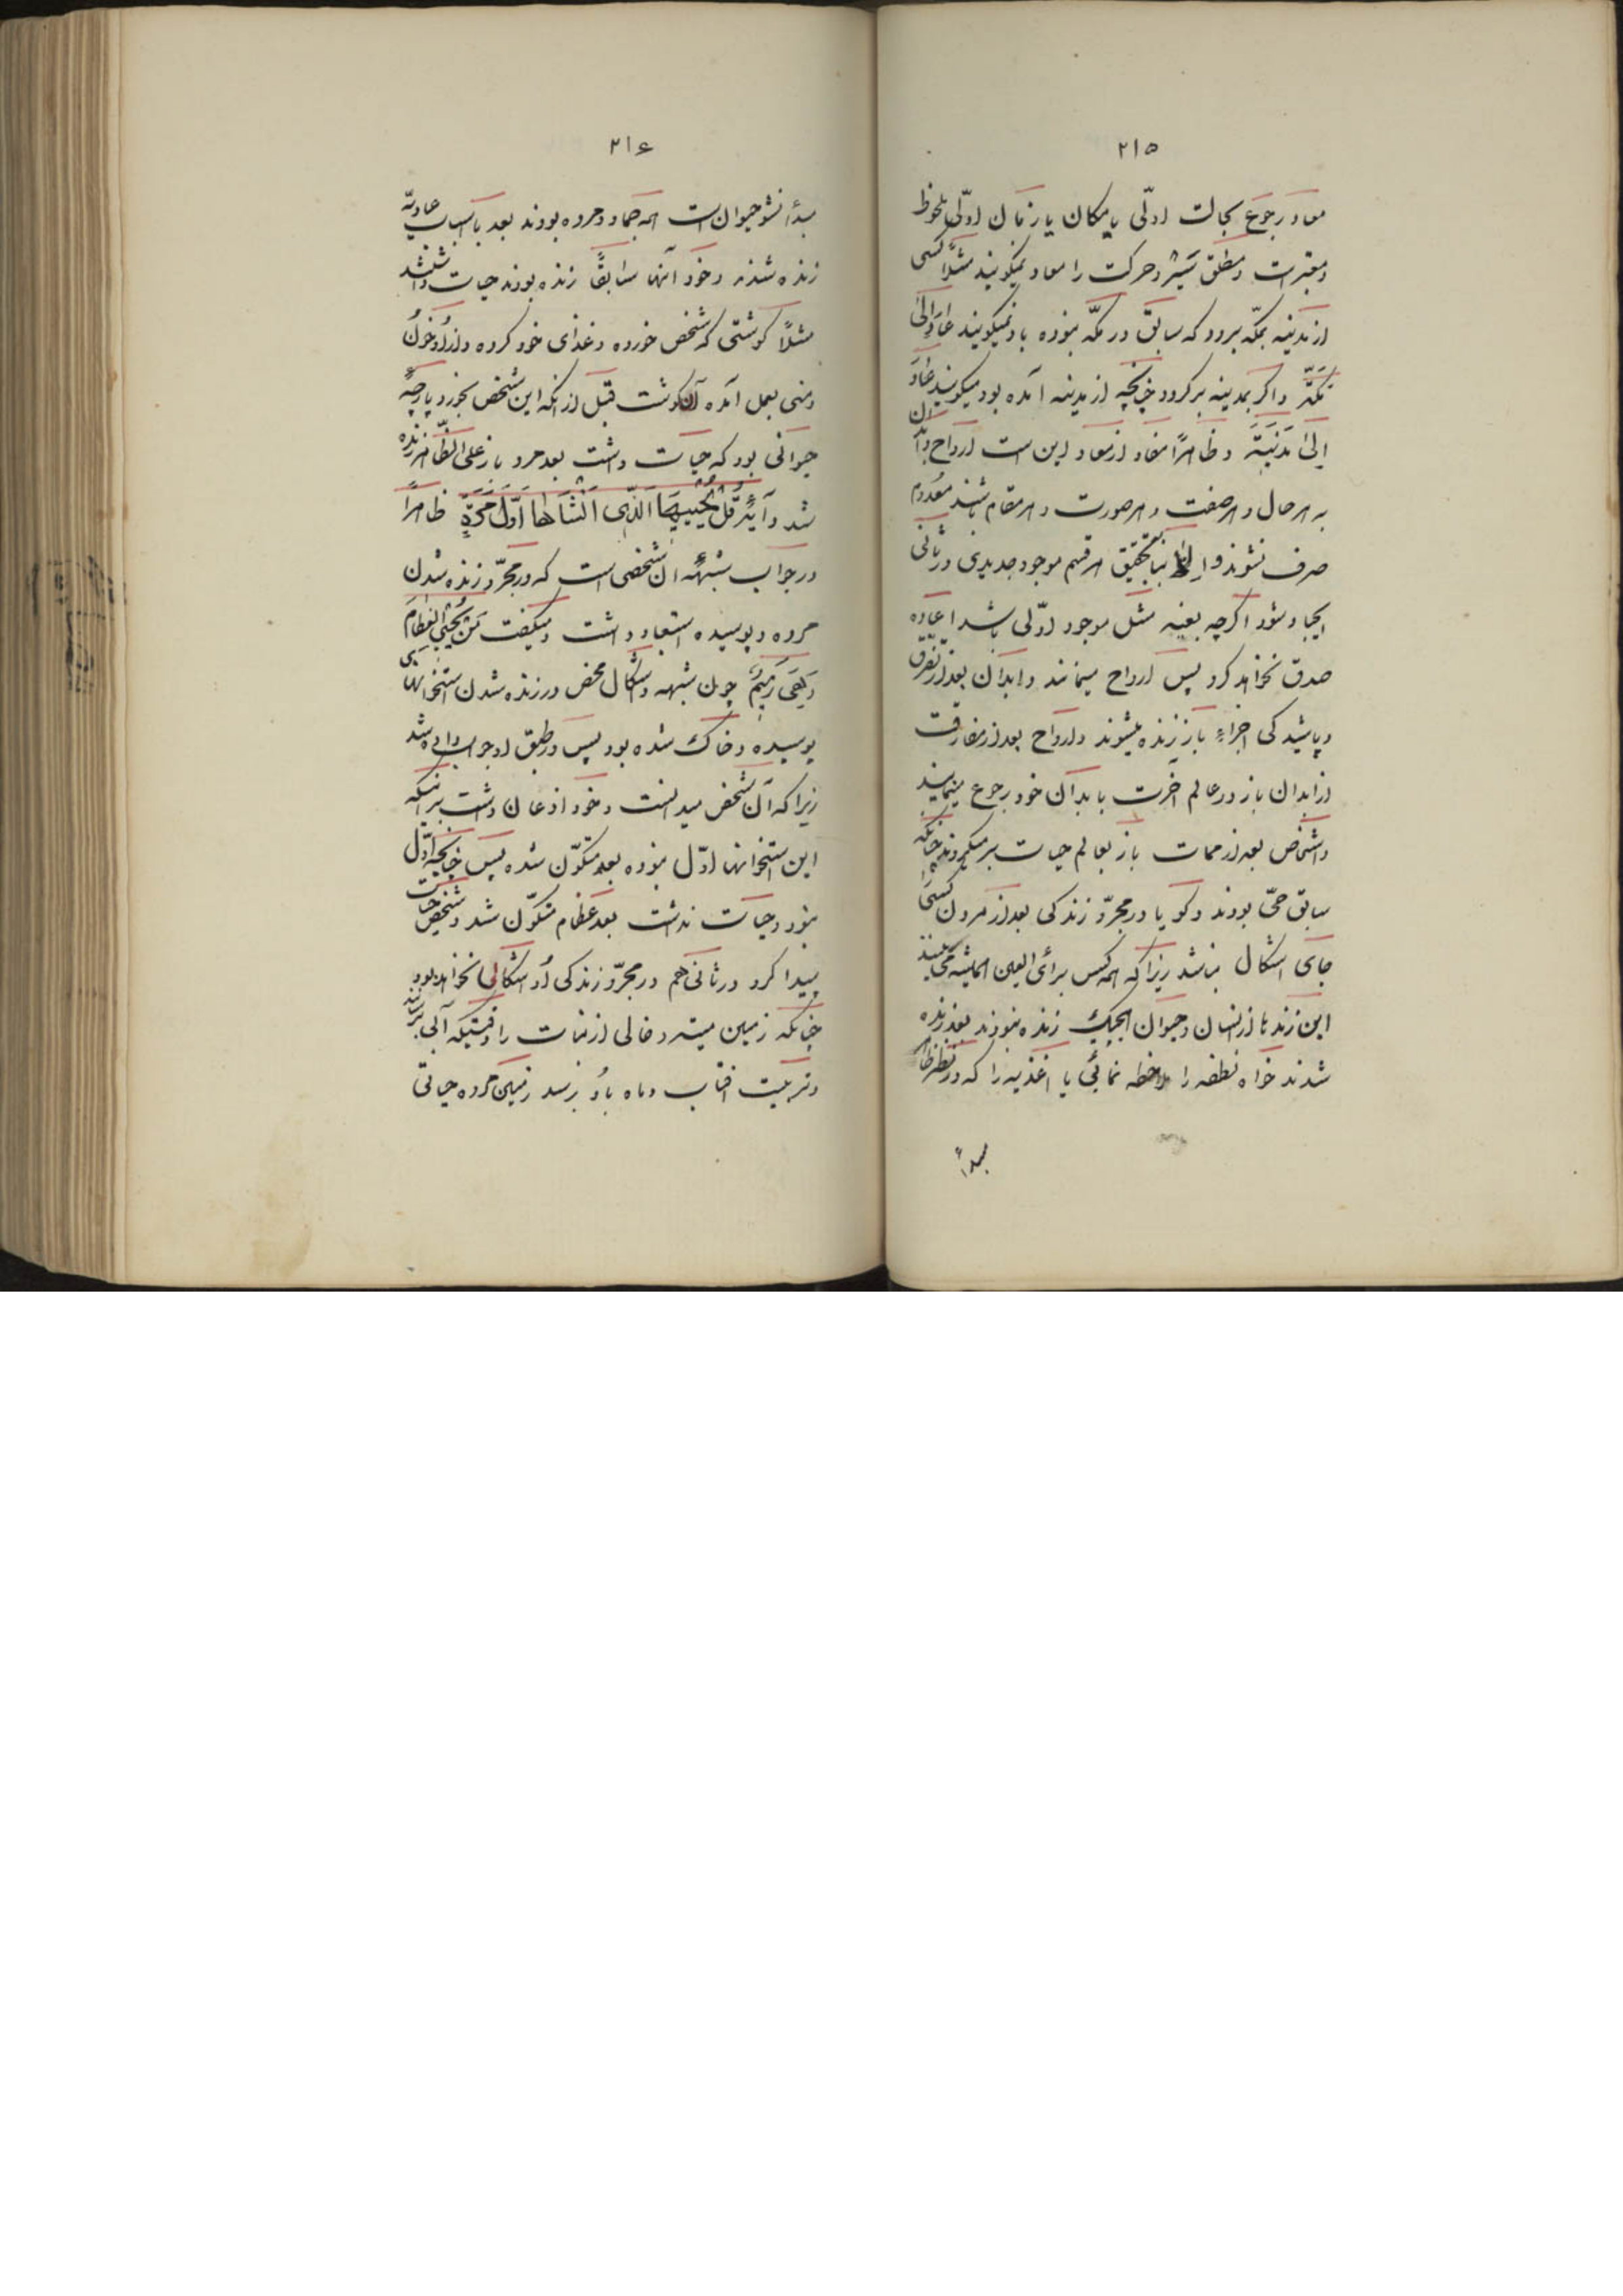 ۲۱۵
معاد رجوع بحالت اولی یا مکان یا زمان اولی ملحوظ
و معتبر است و مطلق سیر و حرکت را معاد نمیگویند مثلاً کسی
از مدینه بمکه برود که سابق در مکه نبوده باو نمیگویند عاد الی
مکة و اگر بمدینه برگردد چنانچه از مدینه آمده بود میگویند عاد
الی مدینة و ظاهراً مفاد از معاد این است ارواح و ابدان
به هر حال و هر صفت و هر صورت و هر مقام باشند معدوم
صرف نشوند و الا بنا بتحقیق هر قسم موجود جدیدی در ثانی
ایجاد شود اگرچه بعینه مثل موجود اولی باشد اعاده
صدق نخواهد کرد پس ارواح میمانند و ابدان بعد از تفرق
و پاشیدگی اجزاء باز زنده میشوند و ارواح بعد از مفارقت
از ابدان باز در عالم آخرت با بدان خود رجوع مینمایند
و اشخاص بعد از ممات باز بعالم حیات برمیگردند چنانکه
سابق حی بودند و گویا در مجرد زندگی بعد از مردن کسی
جای اشکال نباشد زیرا که همه کس برأی العین همیشه می بیند
این زندها از انسان و حیوان هیچیک زنده نبودند بعد زنده
شدند خواه نطفه را ملاحظه نمائی یا اغذیه را که در نظر ظاهر
مبدأ
۲۱۶
مبدأ نشو حیوان است همه جماد و مرده بودند بعد باسباب عادیه
زنده شدند و خود آنها سابقاً زنده بودند حیات داشتند
مثلاً گوشتی که شخص خورده و غذای خود کرده و از او خون
و منی بعمل آمده آن گوشت قبل از آنکه این شخص بخورد پارچه
حیوانی بود که حیات داشت بعد مرد باز علی الظاهر زنده
شد و آیۀ قل یحییها الذی انشأها اول مرة ظاهراً
در جواب شبهه آن شخصی است که در مجرد زنده شدن
مرده و پوسیده استبعاد داشت و میگفت من یحیی العظام
و هی رمیم چون شبهه و اشکال محض در زنده شدن استخوانهای
پوسیده و خاک شده بود پس بر طبق او جواب داده شد
زیرا که آن شخص میدانست و خود اذعان داشت بر اینکه
این استخوانها اول نبوده بعد متکون شده پس چنانچه اول
نبود و حیات نداشت بعد عظام متکون شد و شخص حیات
پیدا کرد در ثانی هم در مجرد زندگی او اشکالی نخواهد بود
چنانکه زمین میته و خالی از نبات را وقتیکه آبی برسانند
و تربیت آفتاب و ماه باو برسد زمین مرده حیاتی